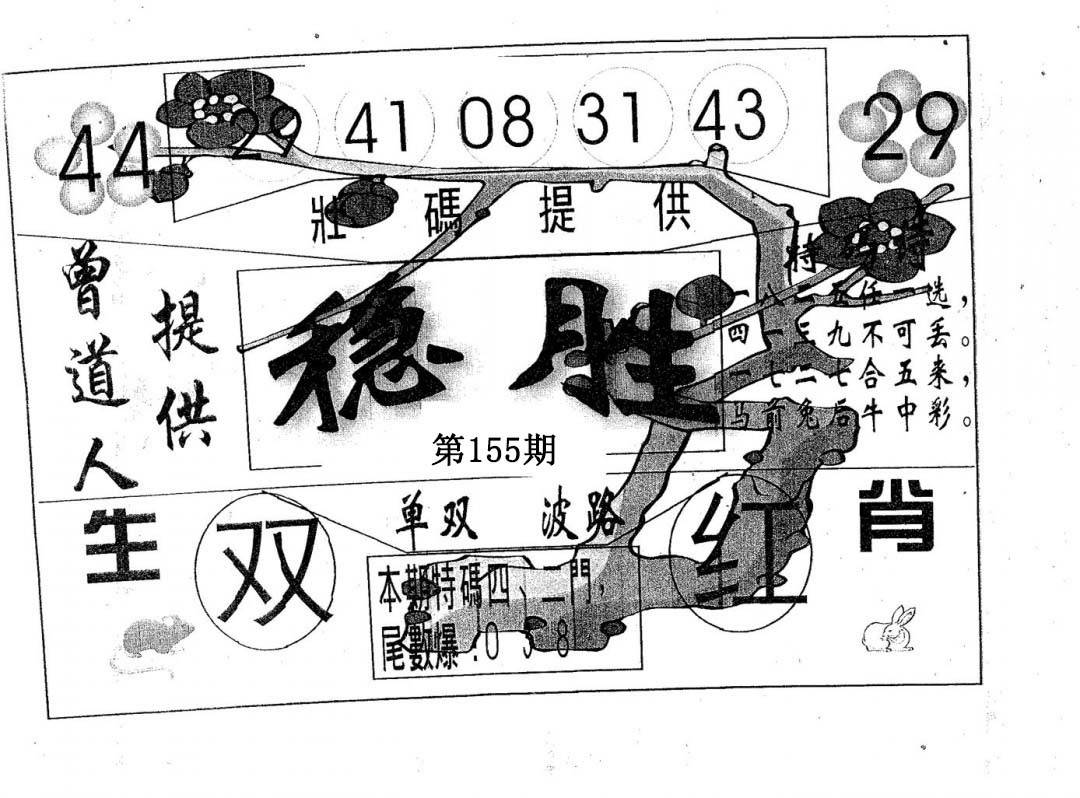 44 29 41 08 31 43 29
壯碼提供
曾道人
提供
特码诗
一八二五任一选，
四一三九不可丢。
一七二七合五来，
马前兔后牛中彩。
稳胜
第155期
单双 波路
生
双
红
肖
本期特碼四、二門，
尾數爆:038